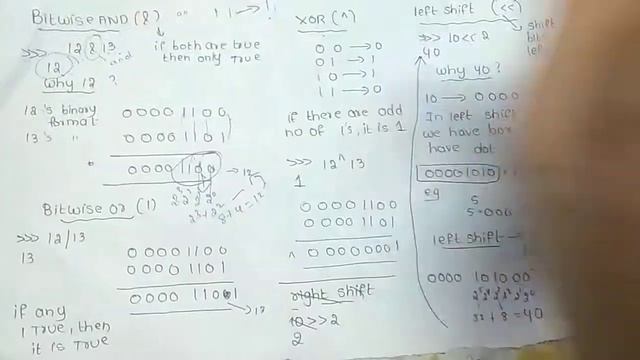 Bitwise AND (&)
if both are true
then only true
>>> 12 & 13
and
12
Why 12 ?
12's binary
format
0 0 0 0 1 1 0 0
13's "
0 0 0 0 1 1 0 1
0 0 0 0 1 1 0 0 → 12
2³ 2² 2¹ 2⁰
2³ + 2²
8 + 4 = 12
Bitwise or (|)
>>> 12/13
13
0 0 0 0 1 1 0 0
0 0 0 0 1 1 0 1
0 0 0 0 1 1 0 1 → 13
if any
1 True, then
it is True
XOR (^)
0 0 → 0
0 1 → 1
1 0 → 1
1 1 → 0
if there are odd
no of 1's, it is 1
>>> 12^13
1
0 0 0 0 1 1 0 0
0 0 0 0 1 1 0 1
^ 0 0 0 0 0 0 0 1
right shift
10 >> 2
2
left shift (<<)
shift
>>> 10 << 2
40
why 40 ?
10 → 0 0 0 0
In left shif
we have
have dot
0 0 0 0 1 0 1 0
eg
5
5.000
left shift
0000 101000
2⁵ 2⁴ 2³ 2² 2¹ 2⁰
32 + 8 = 40